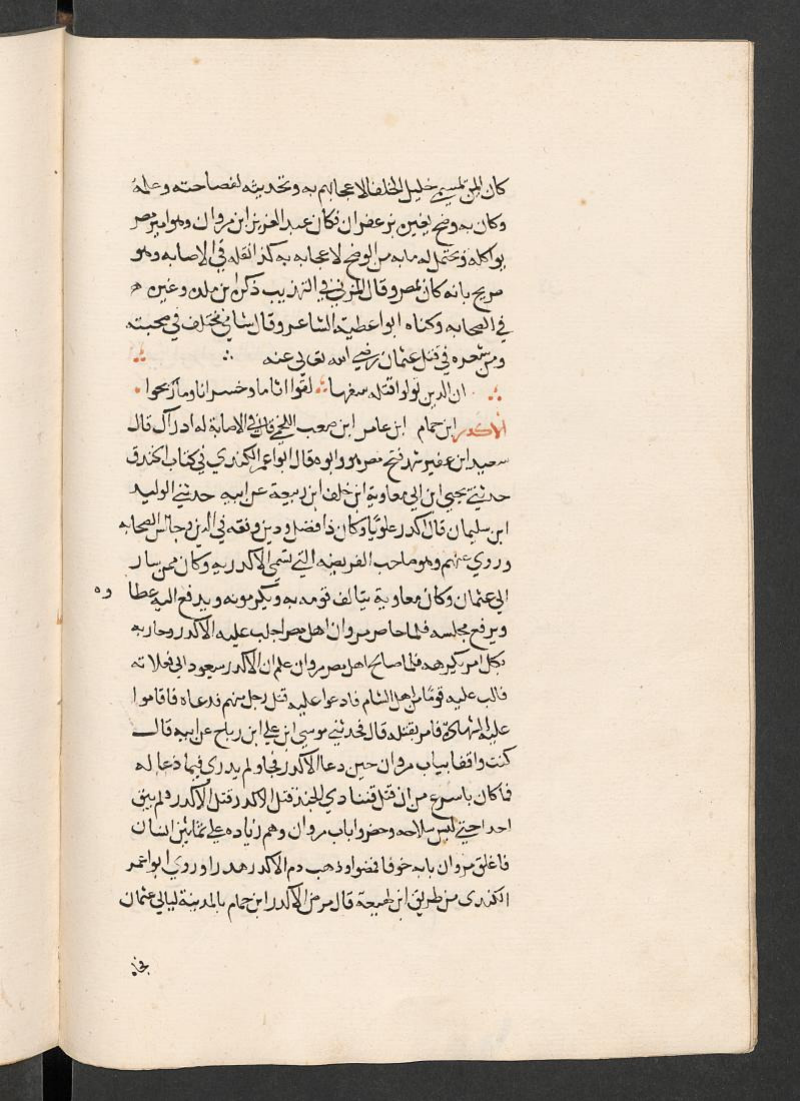 كان ايمن يسمى خليل الخلفا لاعجابهم به وتحديثه لفصاحته وعلمه
وكان به وضح يغيره بزعفران فكان عبد العزيز ابن مروان وهو امير مصر
يواكله ويحتمل له ما به من الوضح لاعجابه به كذا نقله في الاصابه وهو
صريح بانه كان بمصر وقال المزني في التهذيب ذكره ابن منده وغيره
في الصحابه وكناه ابو اعطية الشاعر وقال الشامي مختلف في صحبته
ومن شعره في قتل عثمان رضي الله تعالى عنه
ان الذين تولوا قتله سفها لقوا اثاما وخسرانا وما ربحوا
الاكدر ابن حمام ابن عامر ابن صعب اللخمي قال في الاصابة له ادراك قال
سعيد ابن عفير شهد فتح مصر هو وابوه قال ابو اعمر الكندي في كتاب الخندق
حدثني يحيى ابن ابي معاوية ابن خلف ابن ربيعة عن ابيه حدثني الوليد
ابن سليمان قال اكدر علويا وكان ذا فضل ودين وفقه في الدين وجالس الصحابه
وروي عنهم وهو صاحب الفريضه التي تسمى الاكدريه وكان ممن سار
الى عثمان وكان معاوية يتالف قومه به ويكرمونه ويدفع اليه عطا وه
ويرفع مجلسه فلما حاصر مروان اهل مصر اجلب عليه الاكدر وحاربه
بكل امر يكرهه فلما صالح اهل مصر مروان علم ان الاكدر سيعود الى فعلاته
فالب عليه قوما من اهل الشام فادعوا عليه قتل رجل منهم فدعاه فاقاموا
عليه الشهادة فامر بقتله قال فحدثني موسى ابن علي ابن رباح عن ابيه قال
كنت واقفا بباب مروان حين دعا الاكدر فجا ولم يدري فيما دعا له
فما كان باسرع من ان قتل فتنادي الجند قتل الاكدر قتل الاكدر فلم يبق
احد احتى لبس سلاحه وحضروا باب مروان وهم زياده على ثمانين انسان
فاغلق مروان بابه خوفا فمضوا وذهب دم الاكدر هدرا وروي ابو اعمر
الكندى من طريق ابن لهيعة قال مرض الاكدر ابن حمام بالمدينة ليالي عثمان
فجاه